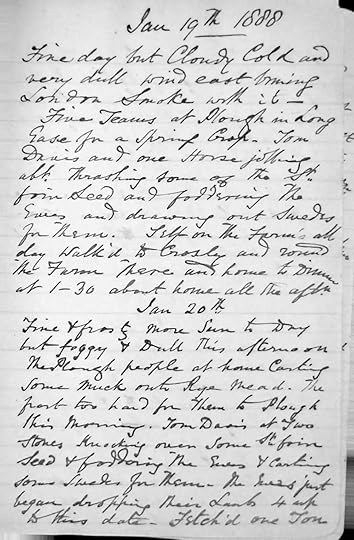 Jan 19th 1888
Fine day but Cloudy Cold and
very dull wind east bring
London Smoke with it -
Five Teams at Plough in Long
Ease for a Spring Crop. Tom
Davis and one Horse jobbing
abt. Thrashing some of the St.
foin Seed and foddering The
Ewes and drawing out Swedes
for them. Self on the Farms all
day Walk'd to Crosly and round
the Farm here and home to Dinner
at 1-30 about home all the aftn
Jan 20th
Fine & frosty more Sun to Day
but foggy & Dull This afternoon
The Plough people at home Carting
Some Muck onto Rye Mead. The
frost too hard for Them to Plough
this Morning. Tom Davis at Two
Stones Knocking over Some St. foin
Seed & foddering The Ewes & Carting
some Swedes for them - The Ewes just
began dropping their Lambs 4 up
to this date - Fetch'd one Ton